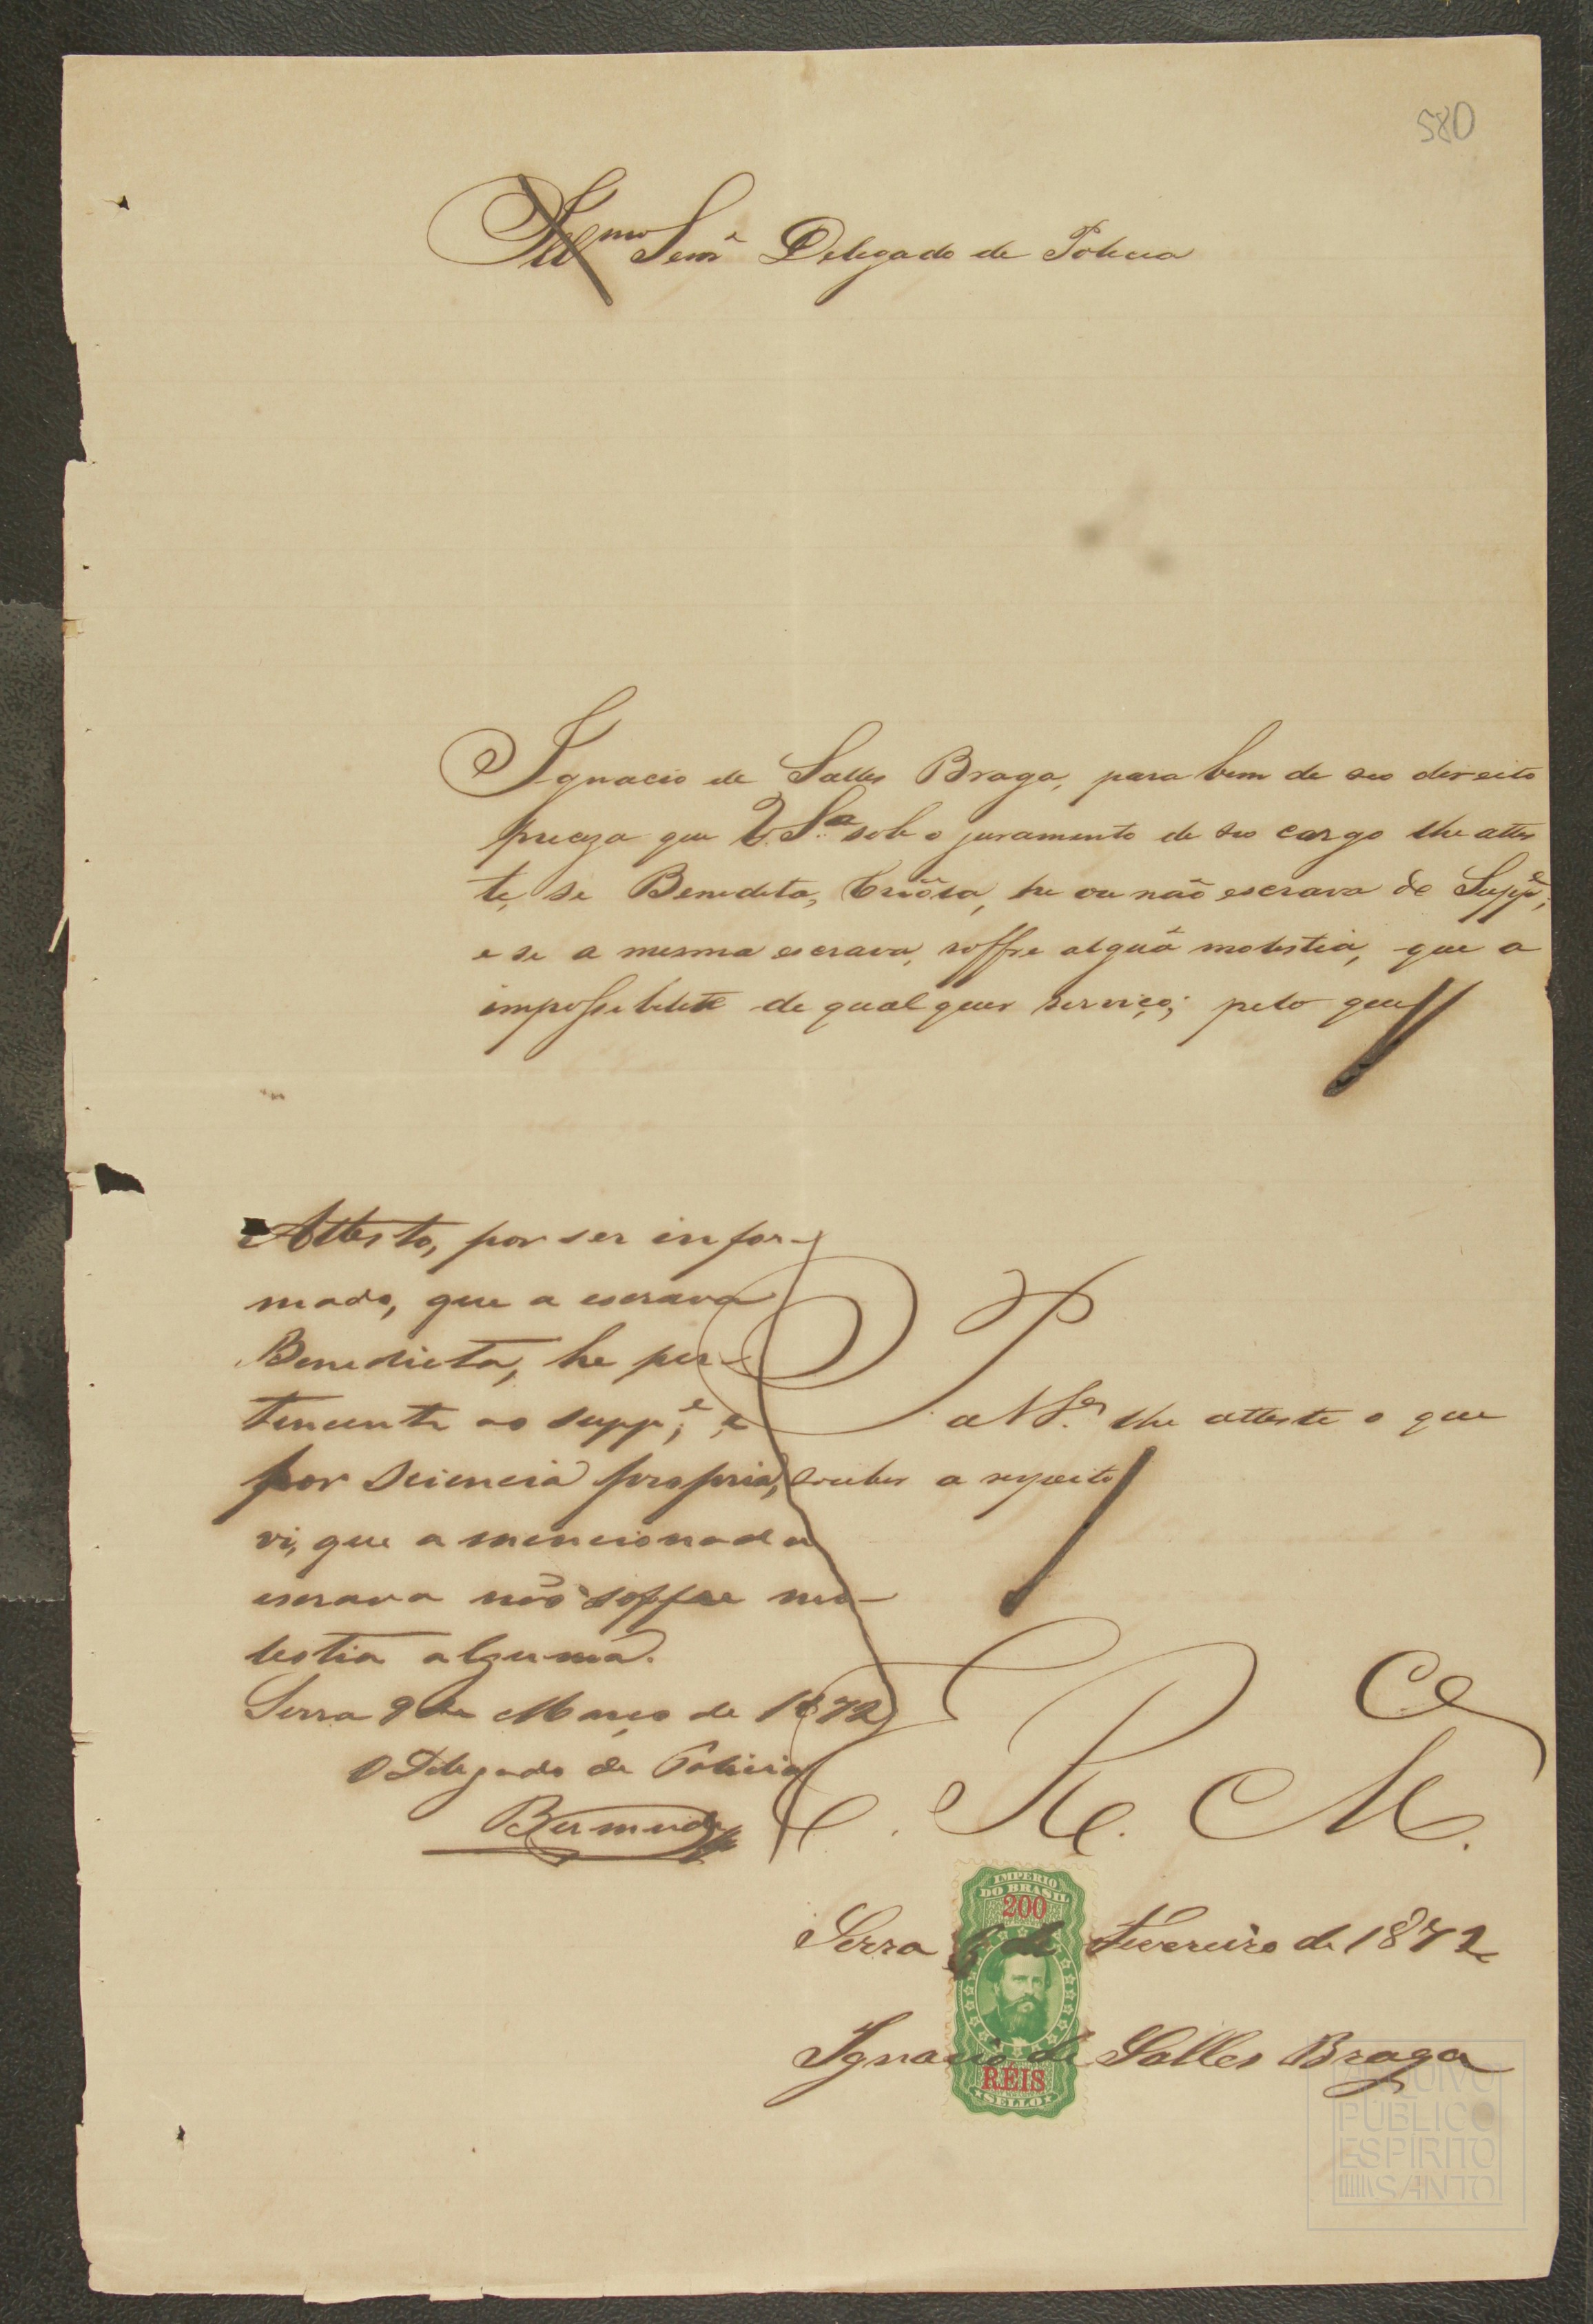 580
Illmo Senr Delegado de Policia
Ignacio de Salles Braga, para bem de seo direito
preciza que V. Sa. sob o juramento de seo cargo lhe attes
te, se Benedita, Criôla, he ou não escrava do Suppe,
e se a mesma escrava, soffre alguã molestia, que a
impossibilite de qualquer serviço; pelo que
P. a V Sa. lhe atteste o que
souber a respeito
E. R. Mce.
Serra de Fevereiro de 1872
Ignacio de Salles Braga
Attesto, por ser infor-
mado, que a escrava
Benedicta, he per-
tencente ao suppe; e
por sciencia propria,
vi, que a mencionada
escrava não soffre mo-
lestia alguma.
Serra 9 de Março de 1872
O Delegado de Policia
Bermudes
IMPERIO
DO BRASIL
200
RÉIS
SELLO
ARQUIVO
PÚBLICO
ESPÍRITO
SANTO